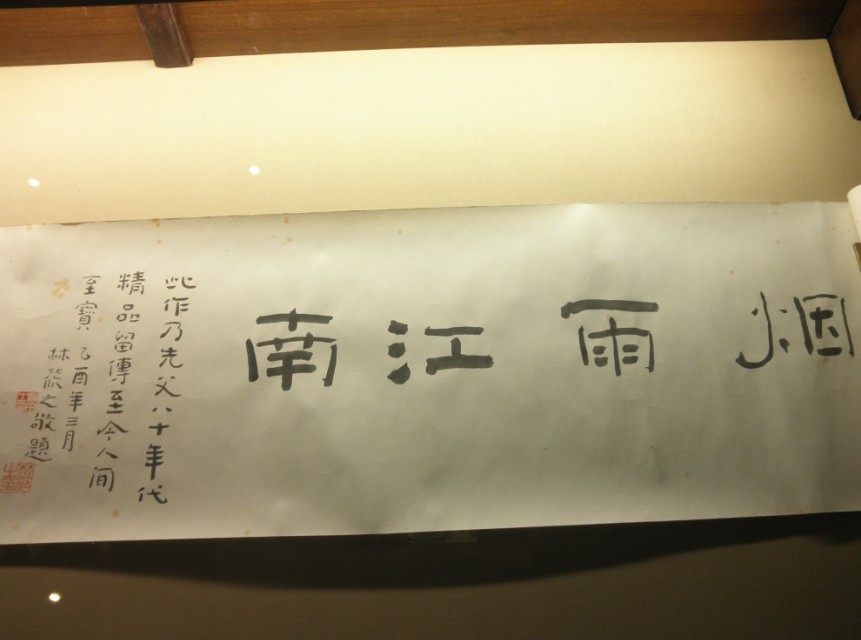 烟雨江南
此作乃先父八十年代
精品留傳至今人间
至寳乙酉年三月
林筱之敬題